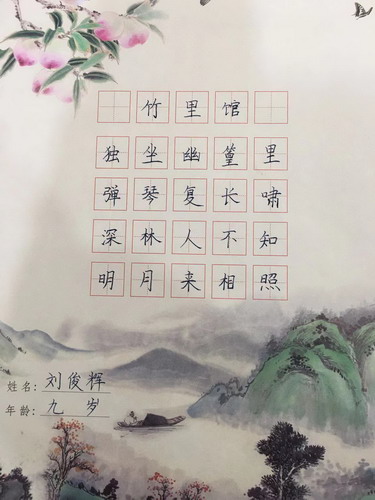 竹里馆
独坐幽篁里
弹琴复长啸
深林人不知
明月来相照
姓名：刘俊辉
年龄：九岁